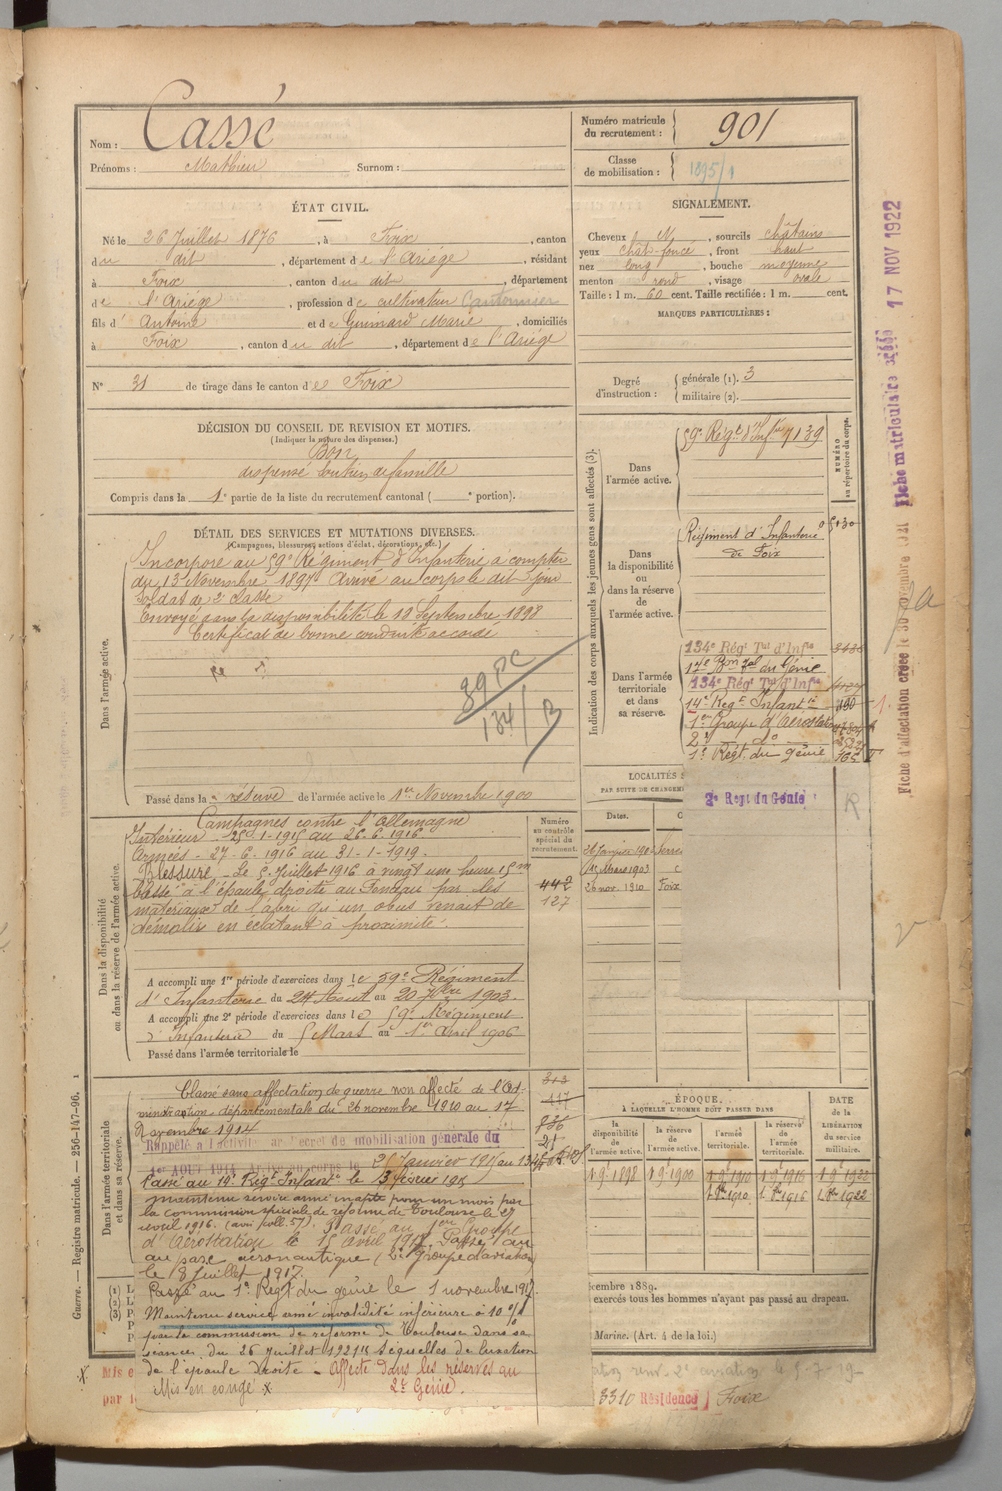 Nom : Cassé
Prénoms : Mathieu Surnom :
Numéro matricule du recrutement : 901
Classe de mobilisation : 1895/1
ÉTAT CIVIL.
Né le 26 Juillet 1876, à Foix, canton
du dit, département de l'Ariège, résidant
à Foix, canton du dit, département
de l'Ariège, profession de cultivateur Cantonnier
fils d'Antoine et de Guimard Marie, domiciliés
à Foix, canton du dit, département de l'Ariège
N° 31 de tirage dans le canton de Foix
SIGNALEMENT.
Cheveux N, sourcils châtains
yeux chât-foncé, front haut
nez long, bouche moyenne
menton rond, visage ovale
Taille : 1 m. 60 cent. Taille rectifiée : 1 m. cent.
MARQUES PARTICULIÈRES :
Degré d'instruction : générale (1). 3
militaire (2).
DÉCISION DU CONSEIL DE REVISION ET MOTIFS.
(Indiquer la nature des dispenses.)
Bon
dispensé soutien de famille
Compris dans la 1e partie de la liste du recrutement cantonal ( e portion).
DÉTAIL DES SERVICES ET MUTATIONS DIVERSES.
(Campagnes, blessures, actions d'éclat, décorations, etc.)
Dans l'armée active.
Incorporé au 59e Régiment d'Infanterie à compter
du 13 Novembre 1897 Arrivé au corps le dit jour
soldat de 2e classe
Envoyé dans la disponibilité le 19 Septembre 1898
Certificat de bonne conduite accordé
89 PC
134/3
Passé dans la réserve de l'armée active le 1er Novembre 1900
Dans la disponibilité ou dans la réserve de l'armée active.
Campagnes contre l'Allemagne
Intérieur - 25-1-1915 au 26-6-1916
Armées - 27-6-1916 au 31-1-1919.
Blessure - Le 5 Juillet 1916 à vingt une heure 15m
blessé à l'épaule droite au par les
matériaux de l'abri qu'un obus venait de
démolir en éclatant à proximité.
Numéro au contrôle spécial du recrutement.
442
127
A accompli une 1re période d'exercices dans le 59e Régiment
d'Infanterie du 24 Aout au 20 7bre 1903.
A accompli une 2e période d'exercices dans le 59e Régiment
d'Infanterie du 5 Mars au 1er Avril 1906
Passé dans l'armée territoriale le
Dans l'armée territoriale et dans sa réserve.
Classé sans affectation de guerre non affecté de l'Ad-
ministration départementale du 26 novembre 1910 au 17
Novembre 1914
Rappelé à l'activité décret de mobilisation générale du
1er AOUT 1914 corps le 25 Janvier 1915 au 134e
Passé au 14e Régt Infantie le 3 février 1915
maintenu service armé inapte pour un mois par
la commission spéciale de réforme de Toulouse le 27
avril 1916. Passé au 1er Groupe
d'Aérostation le 15 avril 1917. Passé au
au parc aéronautique (2e Groupe d'aviation
le 8 Juillet 1917.
Passé au 1er Régt du génie le 1 novembre 1917
Maintenu service armé invalidité inférieure à 10 %
par la commission de réforme de Toulouse dans sa
séance du 26 juillet 1921 séquelles de luxation
de l'épaule droite - Affecté dans les réserves au
Mis en congé x 2e Génie.
313
417
836
21
Indication des corps auxquels les jeunes gens sont affectés (3).
NUMÉRO au répertoire du corps.
Dans l'armée active.
59e Régt d'Infie 7139
Dans la disponibilité ou dans la réserve de l'armée active.
Régiment d'Infanterie
de Foix
05130
Dans l'armée territoriale et dans sa réserve.
134e Régt Tal d'Infie
17e Bon Tal du Génie
134e Régt Tal d'Infie
14e Régt Infantie
1er Groupe d'Aérostation
2e do
1er Régt. du génie
2e Regt du Génie
R
LOCALITÉS
PAR SUITE DE CHANGEM
Dates.
26 nov. 1910 Foix
ÉPOQUE
À LAQUELLE L'HOMME DOIT PASSER DANS
la disponibilité de l'armée active.
la réserve de l'armée active.
l'armée territoriale.
la réserve de l'armée territoriale.
DATE de la LIBÉRATION du service militaire.
1 9e 1898 1 9e 1900 1 9e 1910 1 9e 1916 1 9e 1922
1. 8bre 1910 1. 8bre 1916 1. 8bre 1922
cembre 1889.
exercés tous les hommes n'ayant pas passé au drapeau.
Marine. (Art. 4 de la loi.)
3310 Résidence Foix
x Mis e
par l
Guerre. — Registre matricule. — 256-147-96. 1
Fiche d'affectation créée le 30 novembre
Fiche matriculaire 17 NOV 1922